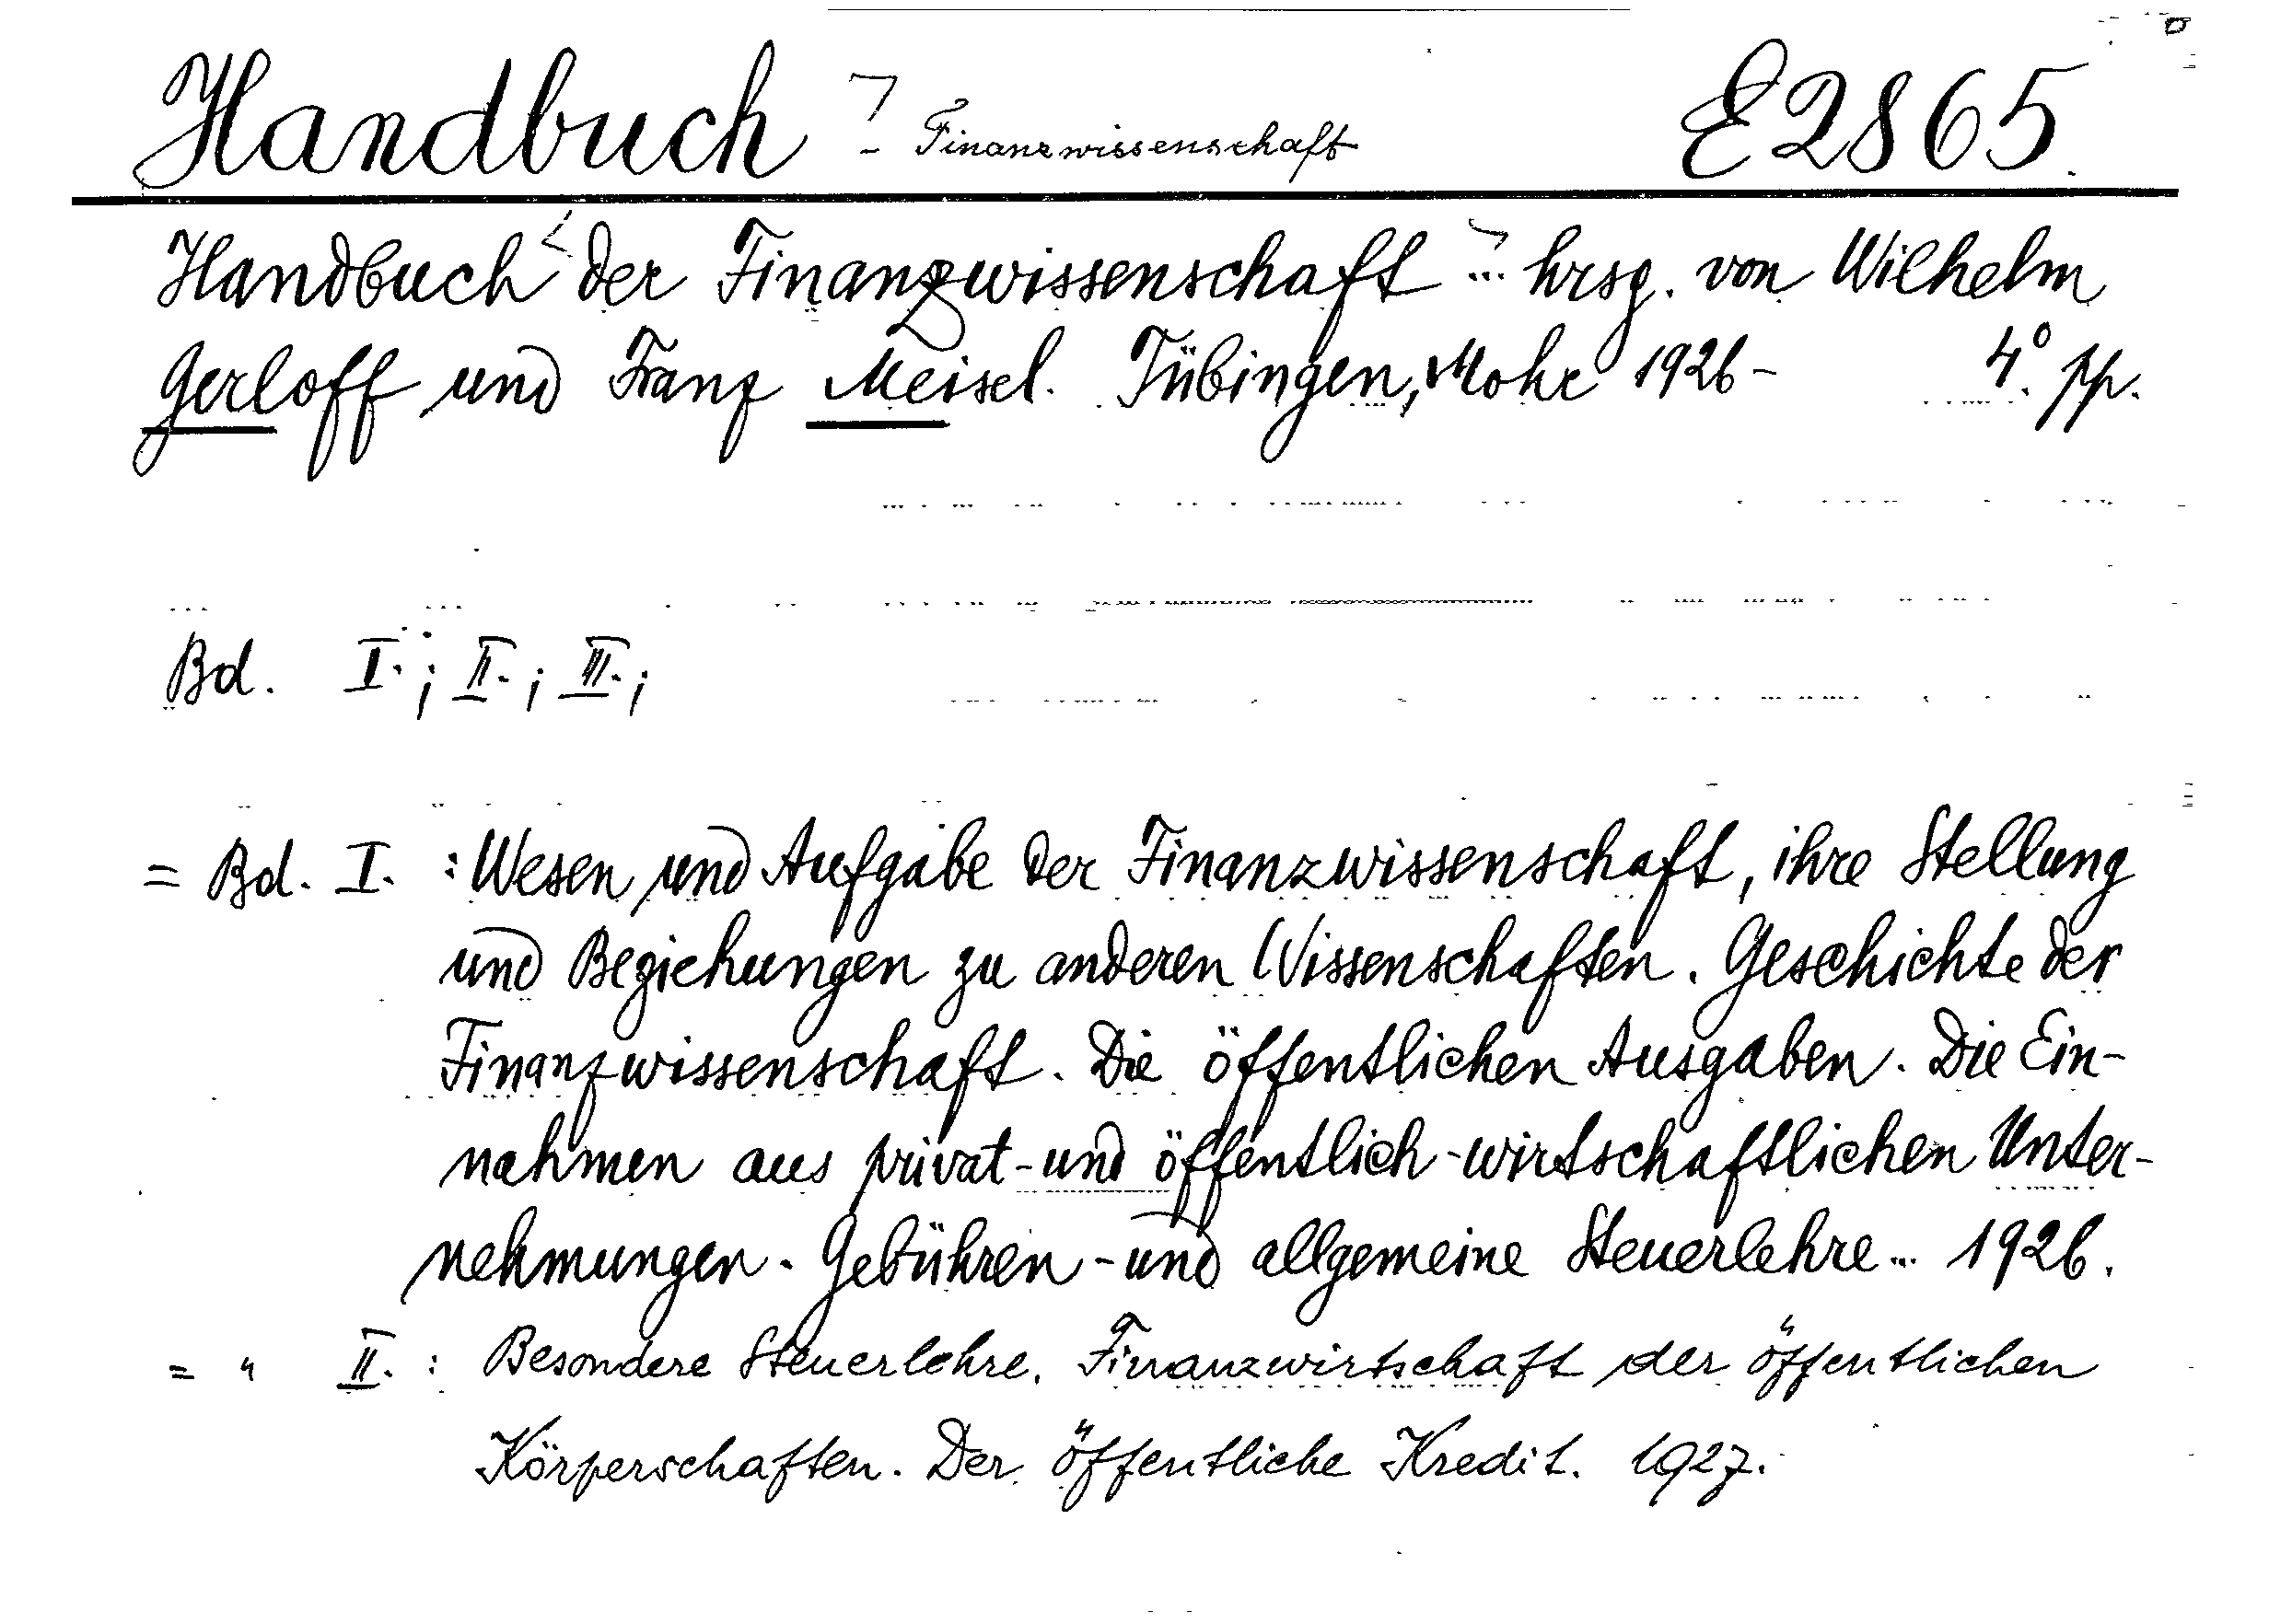 Handbook - Finanzwissenschaft E2865.
Handbuch der Finanzwissenschaft ... hrsg. von Wilhelm
Gerloff und Franz Meisel. Tübingen, Mohr 1926- 4°.
Bd. I.; II.; III.;
= Bd. I. : Wesen und Aufgabe der Finanzwissenschaft, ihre Stellung
und Beziehungen zu anderen Wissenschaften. Geschichte der
Finanzwissenschaft. Die öffentlichen Ausgaben. Die Ein-
nahmen aus privat- und öffentlich-wirtschaftlichen Unter-
nehmungen. Gebühren- und allgemeine Steuerlehre... 1926.
= " II. : Besondere Steuerlehre. Finanzwirtschaft der öffentlichen
Körperschaften. Der öffentliche Kredit. 1927.